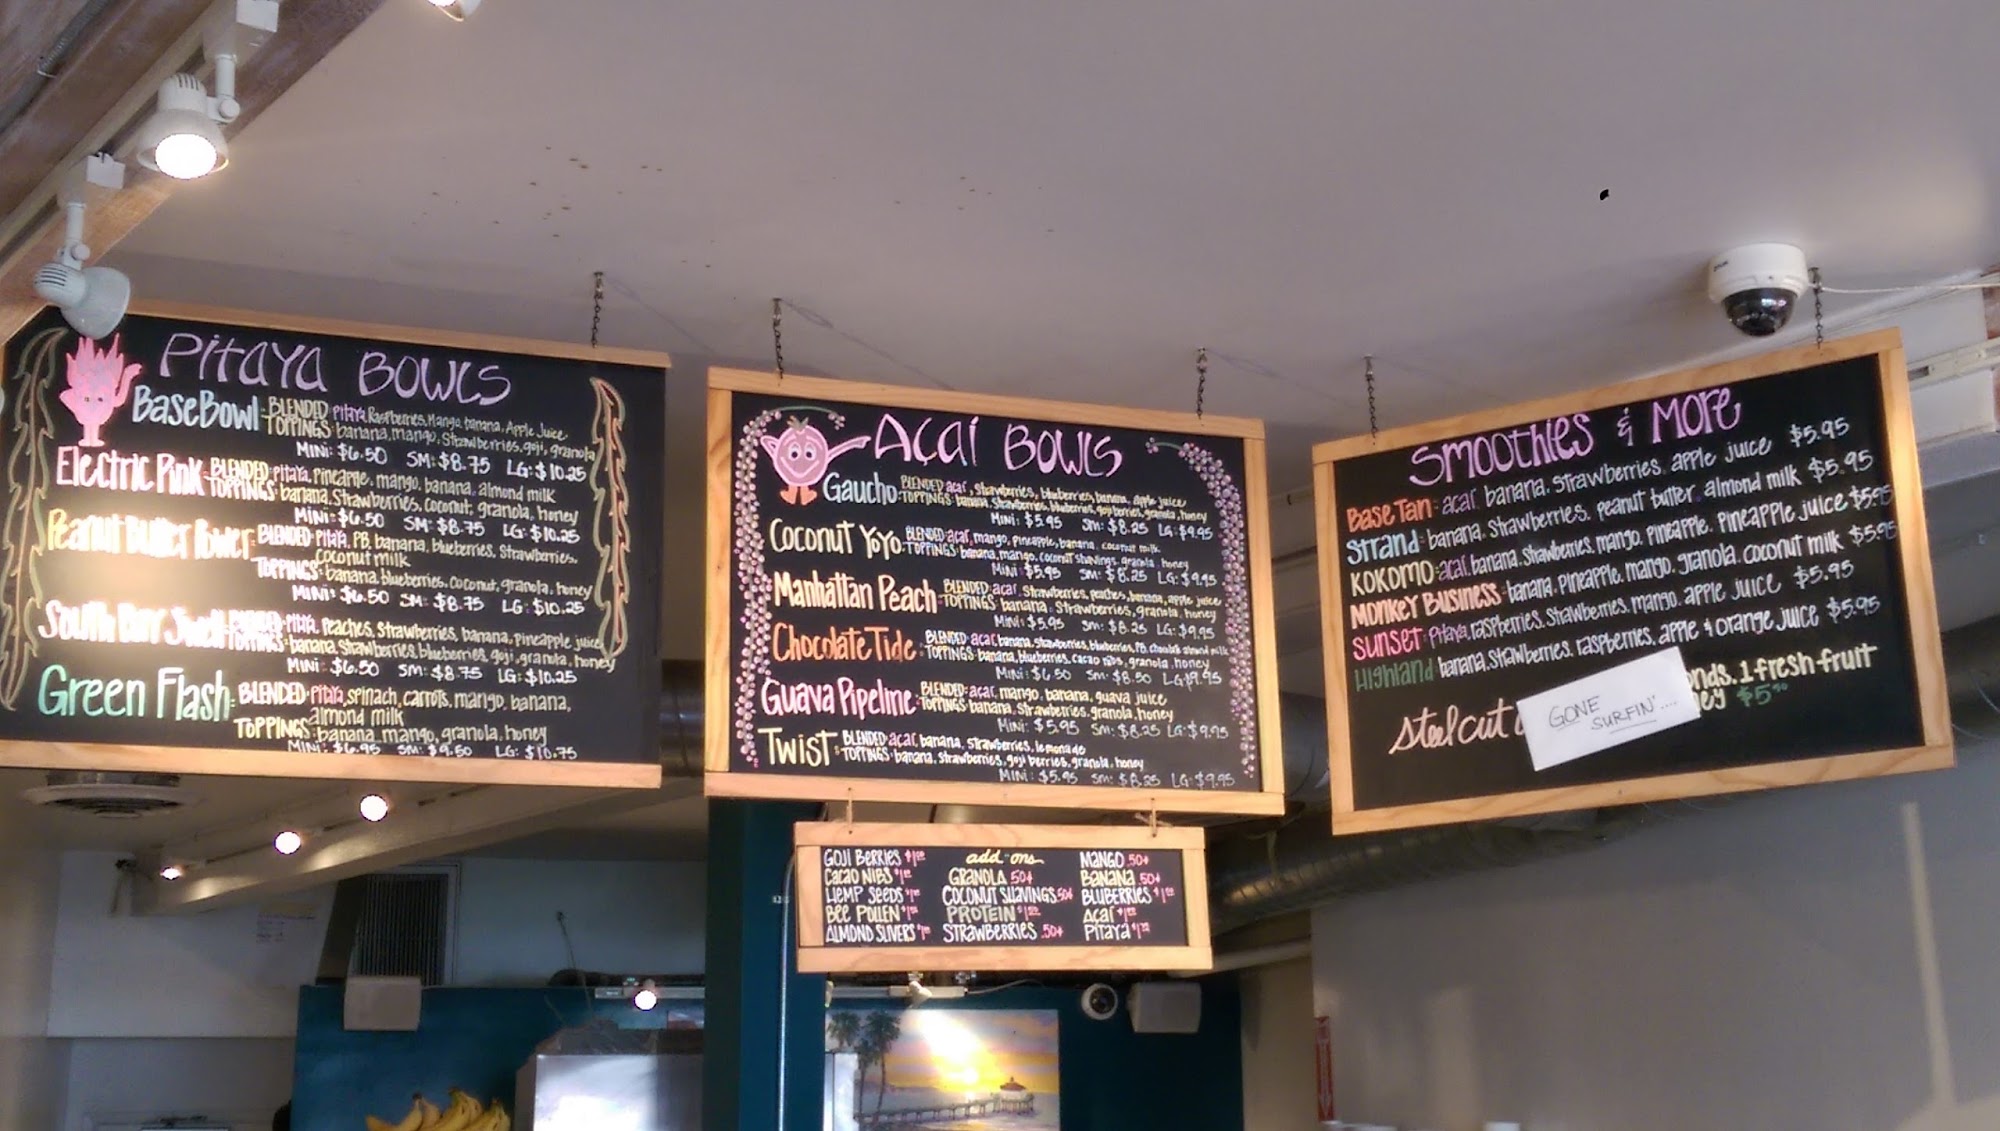 Pitaya Bowls
Base Bowl: BLENDED: Pitaya, Raspberries, Mango, banana, Apple Juice
TOPPINGS: banana, mango, strawberries, goji, granola
MINI: $6.50 SM: $8.75 LG: $10.25
Electric Pink: BLENDED: Pitaya, pineapple, mango, banana, almond milk
TOPPINGS: banana, strawberries, coconut, granola, honey
MINI: $6.50 SM: $8.75 LG: $10.25
Peanut Butter Power: BLENDED: Pitaya, PB, banana, blueberries, strawberries,
coconut milk
TOPPINGS: banana, blueberries, coconut, granola, honey
MINI: $6.50 SM: $8.75 LG: $10.25
South Bay Swell: BLENDED: Pitaya, Peaches, strawberries, banana, pineapple juice
TOPPINGS: banana, strawberries, blueberries, goji, granola, honey
MINI: $6.50 SM: $8.75 LG: $10.25
Green Flash: BLENDED: Pitaya, spinach, carrots, mango, banana,
almond milk
TOPPINGS: banana, mango, granola, honey
MINI: $6.95 SM: $9.50 LG: $10.75
Açaí Bowls
Gaucho: BLENDED: açaí, strawberries, blueberries, banana, apple juice
TOPPINGS: banana, strawberries, blueberries, goji berries, granola, honey
MINI: $5.95 SM: $8.25 LG: $9.95
Coconut YoYo: BLENDED: açaí, mango, pineapple, banana, coconut milk
TOPPINGS: banana, mango, coconut shavings, granola, honey
MINI: $5.95 SM: $8.25 LG: $9.95
Manhattan Peach: BLENDED: açaí, strawberries, peaches, banana, apple juice
TOPPINGS: banana, strawberries, granola, honey
MINI: $5.95 SM: $8.25 LG: $9.95
Chocolate Tide: BLENDED: açaí, banana, strawberries, blueberries, PB, chocolate almond milk
TOPPINGS: banana, blueberries, cacao nibs, granola, honey
MINI: $6.50 SM: $8.50 LG: $9.95
Guava Pipeline: BLENDED: açaí, mango, banana, guava juice
TOPPINGS: banana, strawberries, granola, honey
MINI: $5.95 SM: $8.25 LG: $9.95
Twist: BLENDED: açaí, banana, strawberries, lemonade
TOPPINGS: banana, strawberries, goji berries, granola, honey
MINI: $5.95 SM: $8.25 LG: $9.95
Smoothies & More
Base Tan: açaí, banana, strawberries, apple juice $5.95
Strand: banana, strawberries, peanut butter, almond milk $5.95
Kokomo: açaí, banana, strawberries, mango, pineapple, pineapple juice $5.95
Monkey Business: banana, pineapple, mango, granola, coconut milk $5.95
Sunset: Pitaya, raspberries, strawberries, mango, apple juice $5.95
Highland: banana, strawberries, raspberries, apple & orange juice $5.95
Steel cut onds, 1 fresh fruit
ey $5
GONE
SURFIN'....
add ons
GOJI BERRIES $1
CACAO NIBS $1
HEMP SEEDS $1
BEE POLLEN $1
ALMOND SLIVERS $1
GRANOLA .50¢
COCONUT SHAVINGS .50¢
PROTEIN $1
STRAWBERRIES .50¢
MANGO .50¢
BANANA .50¢
BLUBERRIES $1
AÇAÍ $1
PITAYA $1